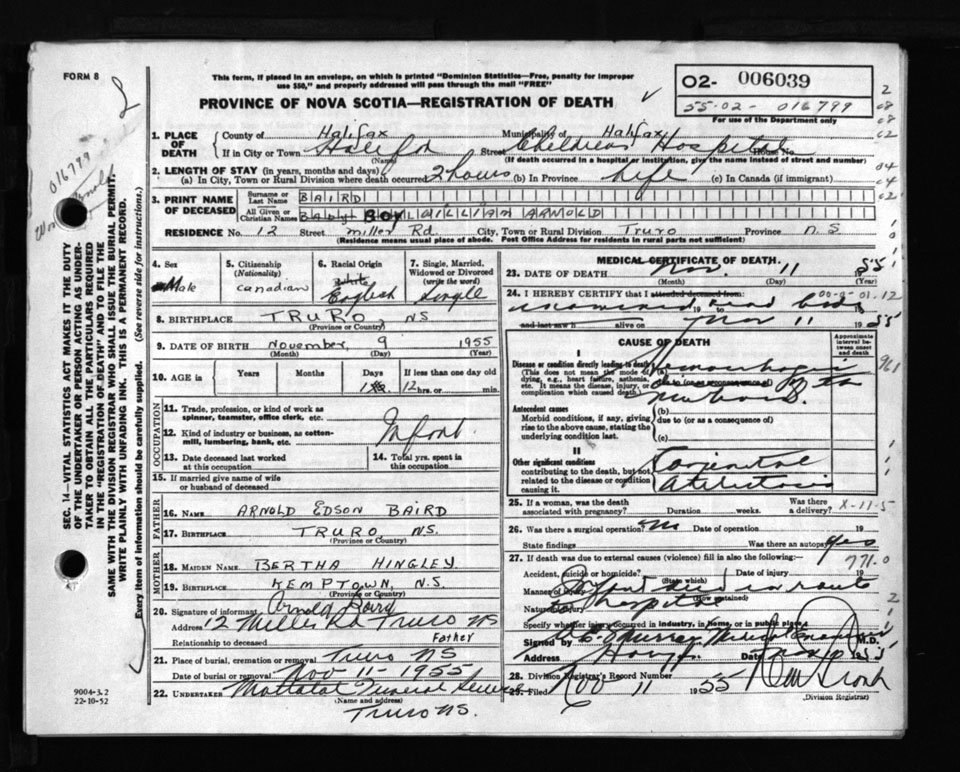 FORM 8
This form, if placed in an envelope, on which is printed "Dominion Statistics—Free, penalty for improper
use $50," and properly addressed will pass through the mail "FREE"
PROVINCE OF NOVA SCOTIA—REGISTRATION OF DEATH
02- 006039
55-02- 016799
For use of the Department only
016799
SEC. 14—VITAL STATISTICS ACT MAKES IT THE DUTY
OF THE UNDERTAKER OR PERSON ACTING AS UNDER-
TAKER TO OBTAIN ALL THE PARTICULARS REQUIRED
IN THE "REGISTRATION OF DEATH" AND TO FILE THE
SAME WITH THE DIVISION REGISTRAR WHO SHALL ISSUE THE BURIAL PERMIT.
WRITE PLAINLY WITH UNFADING INK. THIS IS A PERMANENT RECORD.
Every item of information should be carefully supplied. (See reverse side for instructions.)
1. PLACE OF DEATH County of Halifax Municipality of Halifax
If in City or Town Halifax Street Childrens Hospital House No.
(Name) (If death occurred in a hospital or institution, give the name instead of street and number)
2. LENGTH OF STAY (in years, months and days)
(a) In City, Town or Rural Division where death occurred 2 hours (b) In Province Life (c) In Canada (if immigrant)
3. PRINT NAME OF DECEASED Surname or Last Name BAIRD
All Given or Christian Names Baby BOY WILLIAM ARNOLD
RESIDENCE No. 12 Street Miller Rd. City, Town or Rural Division Truro Province N.S
(Residence means usual place of abode. Post Office Address for residents in rural parts not sufficient)
4. Sex Male
5. Citizenship (Nationality) Canadian
6. Racial Origin White English
7. Single, Married, Widowed or Divorced (write the word) Single
8. BIRTHPLACE TRURO, NS
(Province or Country)
9. DATE OF BIRTH November 9 1955
(Month) (Day) (Year)
10. AGE in Years Months Days If less than one day
12 hrs. or min.
OCCUPATION
11. Trade, profession, or kind of work as spinner, teamster, office clerk, etc.
12. Kind of industry or business, as cotton-mill, lumbering, bank, etc. Infant.
13. Date deceased last worked at this occupation
14. Total yrs. spent in this occupation
15. If married give name of wife or husband of deceased
FATHER
16. NAME ARNOLD EDSON BAIRD
17. BIRTHPLACE TRURO NS.
(Province or Country)
MOTHER
18. MAIDEN NAME BERTHA HINGLEY
19. BIRTHPLACE KEMPTOWN, N.S.
(Province or Country)
20. Signature of informant Arnold Baird
12 Miller Rd Truro NS
Relationship to deceased Father
21. Place of burial, cremation or removal Truro NS
Date of burial or removal Nov 11- 1955
22. UNDERTAKER Mattatal Funeral Service
(Name and address)
Truro NS.
9004-3.2
22-10-52
MEDICAL CERTIFICATE OF DEATH.
23. DATE OF DEATH Nov. 11 1955
(Month) (Day) (Year)
24. I HEREBY CERTIFY that I attended deceased from:
19 to
and last saw h alive on Nov 11 1955
CAUSE OF DEATH
Approximate interval between onset and death
I
Disease or condition directly leading to death
(This does not mean the mode of dying, e.g., heart failure, asthenia, etc. It means the disease, injury, or complication which caused death)
due to (or as a consequence of)
Hemorrhagic of the newborn.
Antecedent causes
Morbid conditions, if any, giving rise to the above cause, stating the underlying condition last.
(b)
due to (or as a consequence of)
(c)
II
Other significant conditions
contributing to the death, but not related to the disease or condition causing it.
Congenital
Atelectasis
961
25. If a woman, was the death associated with pregnancy? Duration weeks. Was there a delivery? X-11-5
26. Was there a surgical operation? No Date of operation 19
State findings Was there an autopsy? Yes
27. If death was due to external causes (violence) fill in also the following: 771.0
Accident, suicide or homicide? Date of injury 19
(State which)
Manner of injury
(How sustained)
Nature of injury hospital
Specify whether injury occurred in industry, in home, or in public place
Signed by Murray Medical Examiner M.D.
Address Date 1955
28. Division Registrar's Record Number
29. Filed Nov 11 1955
(Division Registrar)